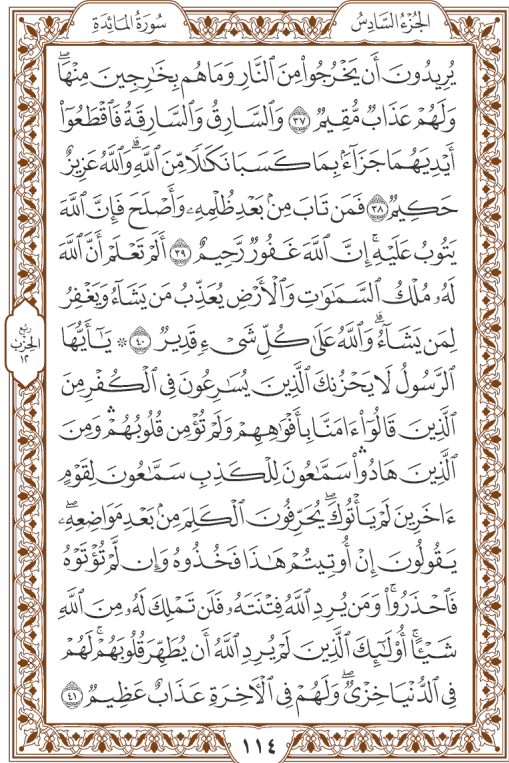 سُورَةُ المَائِدَةِ
الجُزْءُ السَّادِسُ
يُرِيدُونَ أَن يَخْرُجُواْ مِنَ ٱلنَّارِ وَمَا هُم بِخَٰرِجِينَ مِنْهَاۖ
وَلَهُمْ عَذَابٌ مُّقِيمٌ ٣٧ وَٱلسَّارِقُ وَٱلسَّارِقَةُ فَٱقْطَعُوٓاْ
أَيْدِيَهُمَا جَزَآءَۢ بِمَا كَسَبَا نَكَٰلًا مِّنَ ٱللَّهِۗ وَٱللَّهُ عَزِيزٌ
حَكِيمٌ ٣٨ فَمَن تَابَ مِنۢ بَعْدِ ظُلْمِهِۦ وَأَصْلَحَ فَإِنَّ ٱللَّهَ
يَتُوبُ عَلَيْهِۚ إِنَّ ٱللَّهَ غَفُورٌ رَّحِيمٌ ٣٩ أَلَمْ تَعْلَمْ أَنَّ ٱللَّهَ
لَهُۥ مُلْكُ ٱلسَّمَٰوَٰتِ وَٱلْأَرْضِ يُعَذِّبُ مَن يَشَآءُ وَيَغْفِرُ
لِمَن يَشَآءُۗ وَٱللَّهُ عَلَىٰ كُلِّ شَىْءٍ قَدِيرٌ ٤٠ ۞ يَٰٓأَيُّهَا
ٱلرَّسُولُ لَا يَحْزُنكَ ٱلَّذِينَ يُسَٰرِعُونَ فِى ٱلْكُفْرِ مِنَ
ٱلَّذِينَ قَالُوٓاْ ءَامَنَّا بِأَفْوَٰهِهِمْ وَلَمْ تُؤْمِن قُلُوبُهُمْۛ وَمِنَ
ٱلَّذِينَ هَادُواْۛ سَمَّٰعُونَ لِلْكَذِبِ سَمَّٰعُونَ لِقَوْمٍ
ءَاخَرِينَ لَمْ يَأْتُوكَۖ يُحَرِّفُونَ ٱلْكَلِمَ مِنۢ بَعْدِ مَوَاضِعِهِۦۖ
يَقُولُونَ إِنْ أُوتِيتُمْ هَٰذَا فَخُذُوهُ وَإِن لَّمْ تُؤْتَوْهُ
فَٱحْذَرُواْۚ وَمَن يُرِدِ ٱللَّهُ فِتْنَتَهُۥ فَلَن تَمْلِكَ لَهُۥ مِنَ ٱللَّهِ
شَيْـًٔاۚ أُوْلَٰٓئِكَ ٱلَّذِينَ لَمْ يُرِدِ ٱللَّهُ أَن يُطَهِّرَ قُلُوبَهُمْۚ لَهُمْ
فِى ٱلدُّنْيَا خِزْىٌۖ وَلَهُمْ فِى ٱلْءَاخِرَةِ عَذَابٌ عَظِيمٌ ٤١
ربع
الحزب
١٢
١١٤